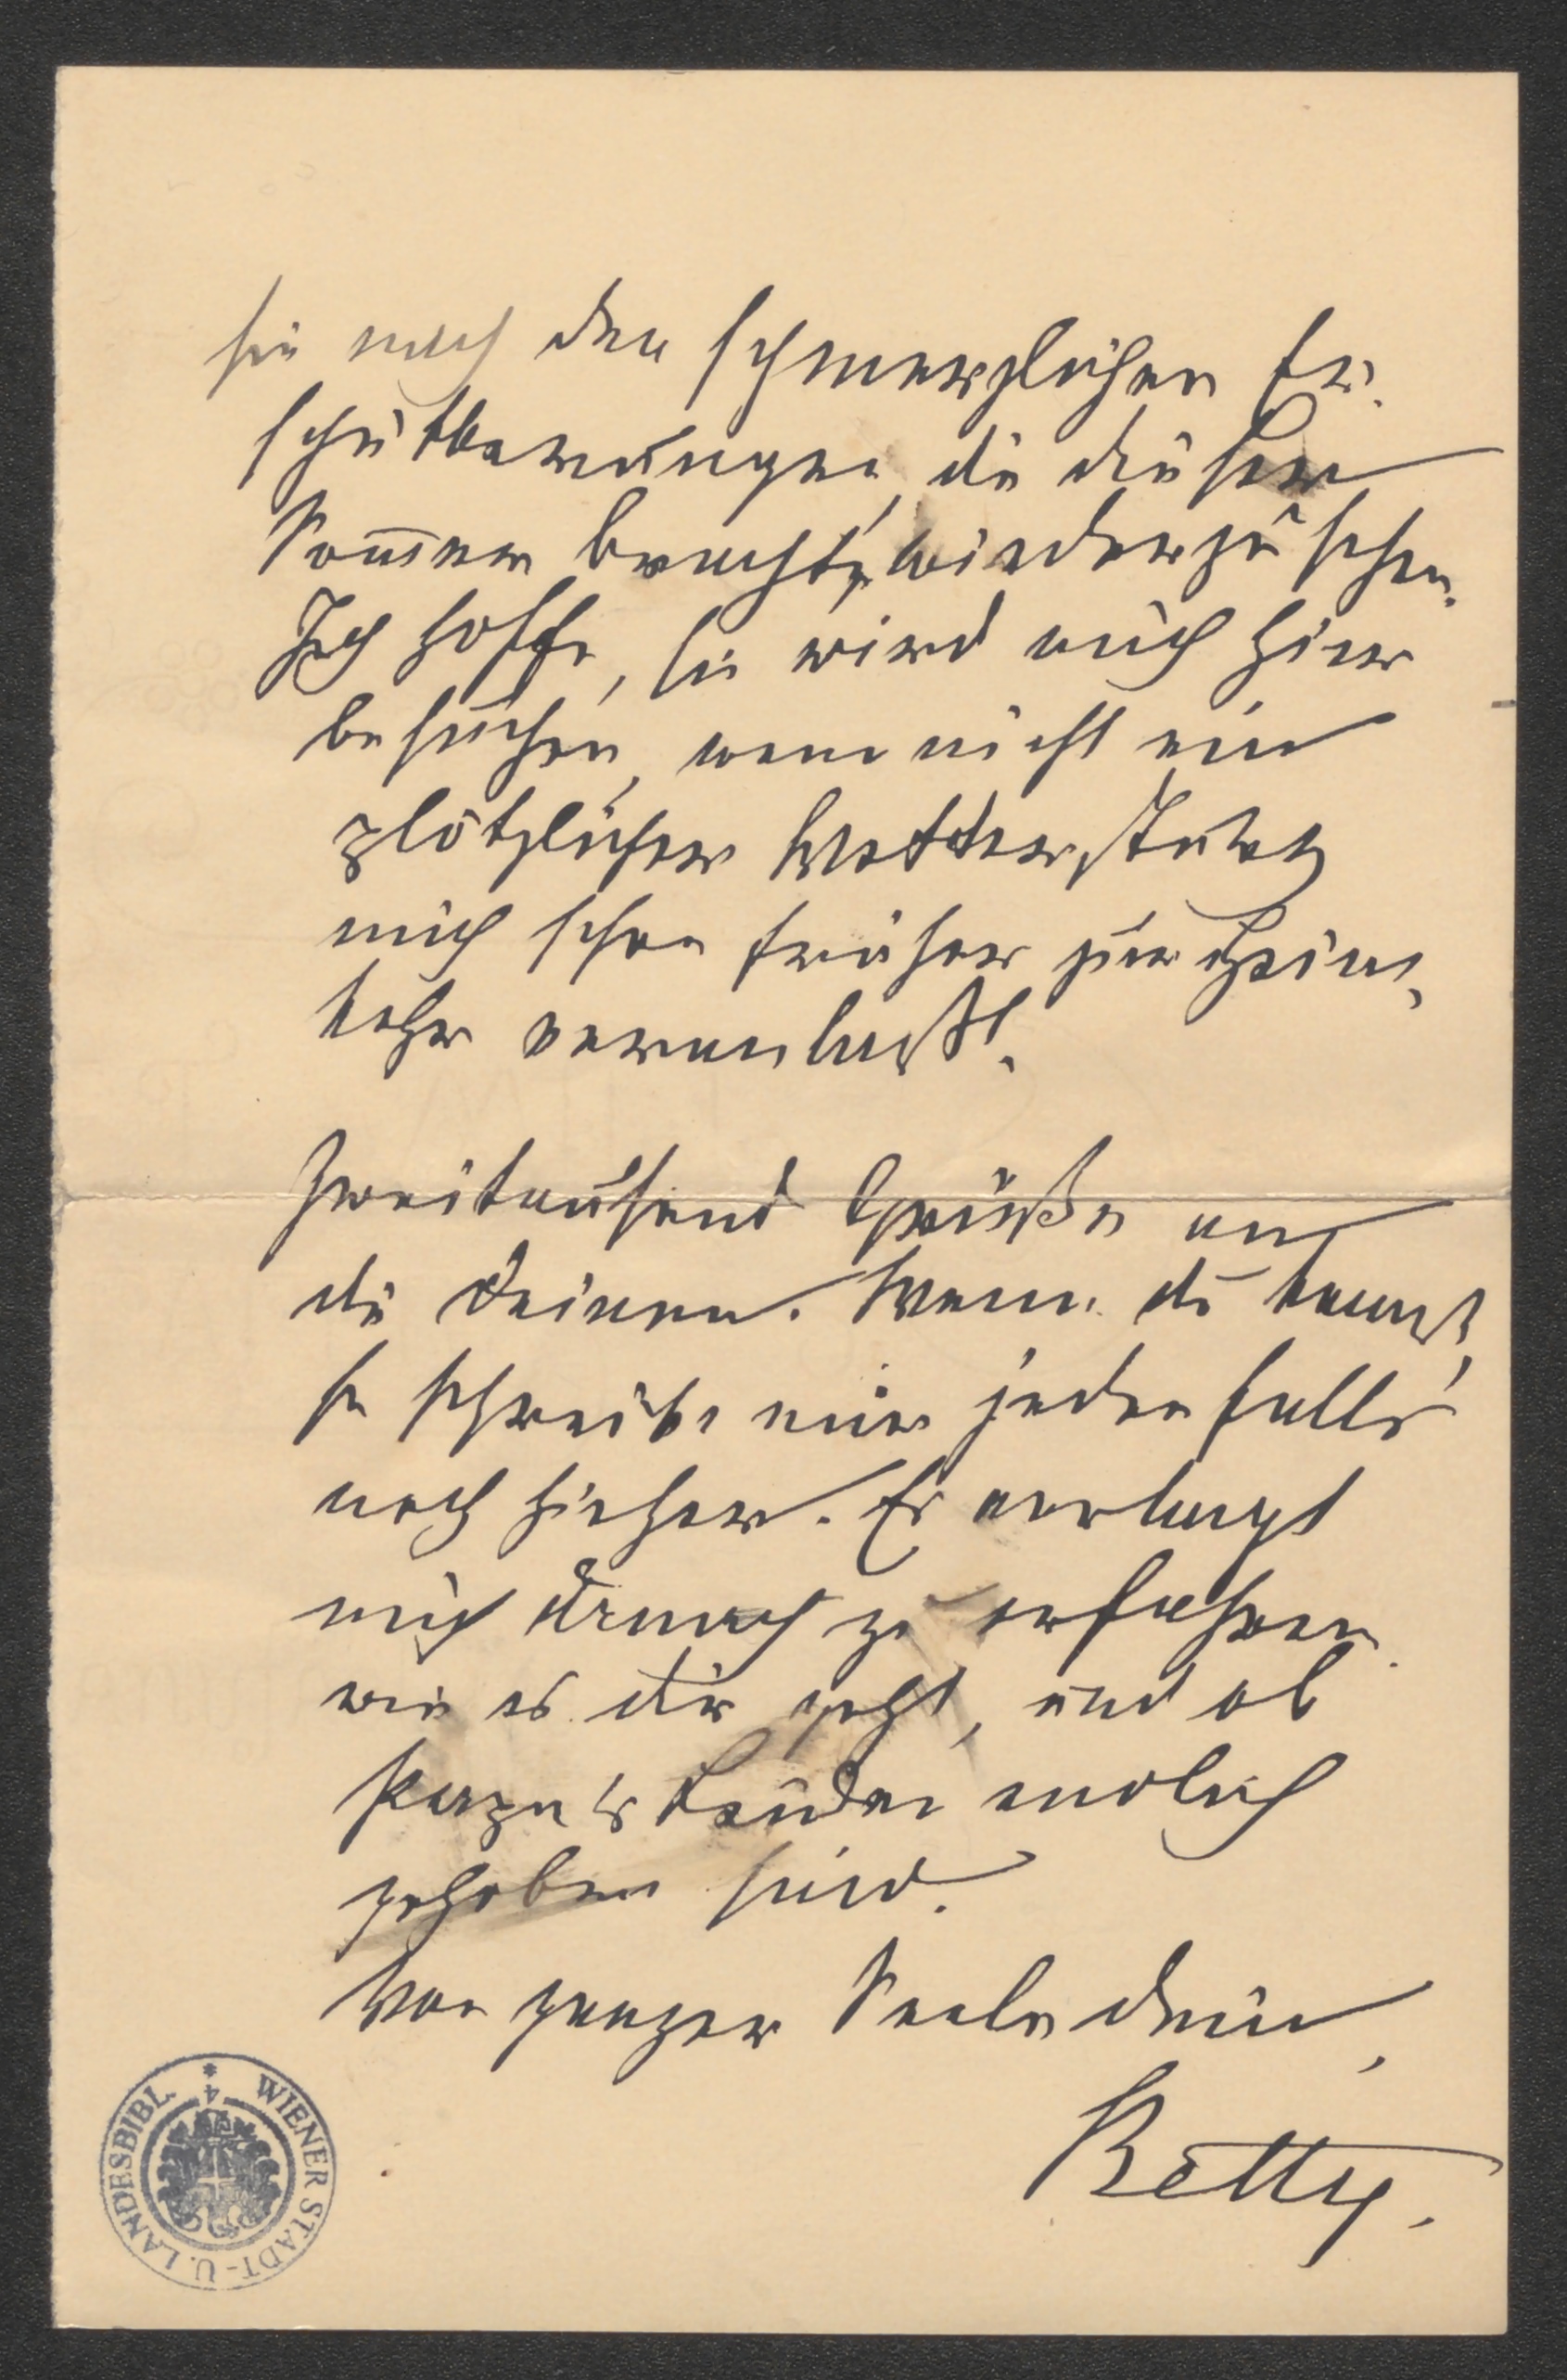 sie nach den schmerzlichen Er-
schütterungen, die dieser
Som̅er brachte, wiederzusehen.
Ich hoffe, sie wird mich hier
besuchen, wenn nicht ein
plötzlicher Wettersturz
mich schon früher zur Heim-
kehr veranlaßt.
Zweitausend Grüße an
die Deinen. Wenn du kannst,
so schreibe mir jedenfalls
noch hieher. Es verlangt
mich darnach zu erfahren
wie es dir geht, und ob
Leiden endlich
gehoben sind.
Von ganzer Seele dein
Betty.
WIENER STADT-U. LANDESBIBL.